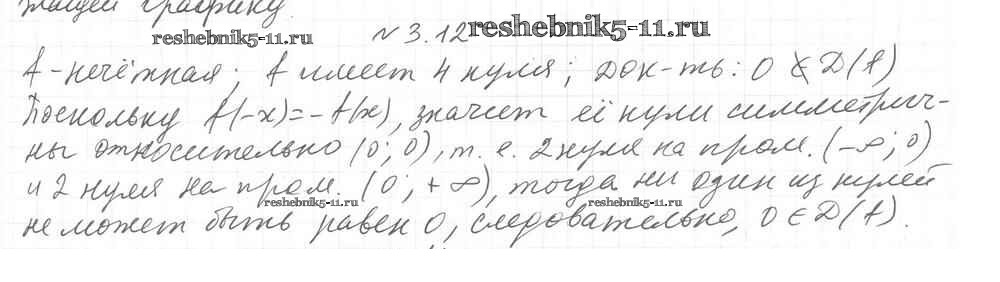 жащей графику.
reshebnik5-11.ru
№ 3.12 reshebnik5-11.ru
f - нечётная; f имеет 4 нуля; док-ть: 0 ∉ D(f)
Поскольку f(-x)=-f(x), значит её нули симметрич-
ны относительно (0; 0), т. е. 2 нуля на пром. (-∞; 0)
и 2 нуля на пром. (0; +∞), тогда ни один из нулей
reshebnik5-11.ru reshebnik5-11.ru
не может быть равен 0, следовательно, 0 ∈ D(f).